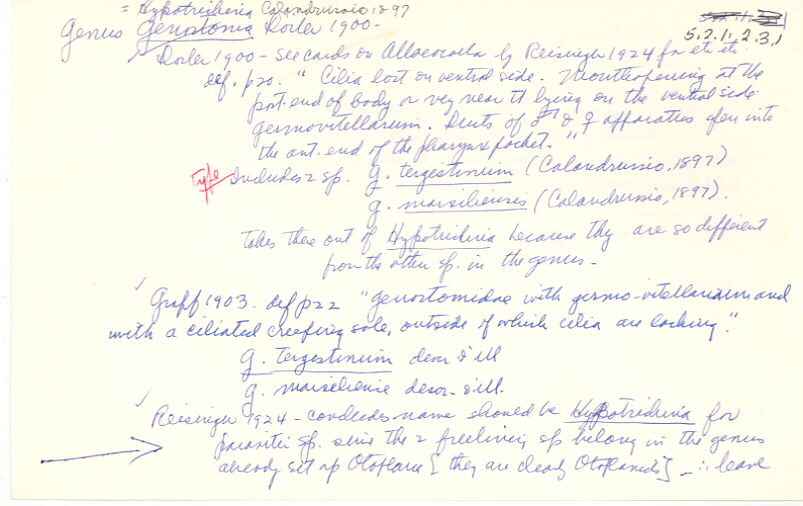 = Hypotrichina Calandruccio 1897
5.2.1.2.3.1
Genus Genostoma Dorler 1900-
✓ Dorler 1900 - see cards on Alloeocoela by Reisinger 1924 for etc etc.
def. p20. "Cilia lost on ventral side. Mouthopening at the
post. end of body or very near it lying on the ventral side
germovitellarium. Ducts of ♂ & ♀ apparatus open into
the ant. end of the pharynx pocket."
type Includes 2 sp. G. tergestinum (Calandruccio, 1897)
G. marsiliensis (Calandruccio, 1897).
takes these out of Hypotrichina because they are so different
from the other sp. in the genus -
✓ Graff 1903. def p22 "Genostomidae with germo-vitellarium and
with a ciliated creeping sole, outside of which cilia are lacking."
G. tergestinum descr & ill
G. marsiliense descr - & ill.
✓ Reisinger 1924 - concludes name should be Hypotrichina for
parasitic sp. since the 2 freeliving sp belong in the genus
already set up Otoplana [they are clearly Otoplanids] - ∴ leave